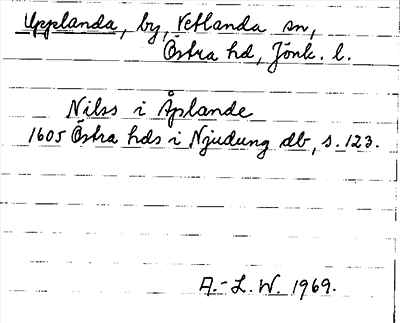 Upplanda, by, Vetlanda sn,
Östra hd, Jönk. l.
Nilss i Åplande
1605 Östra hds i Njudung db, s. 123.
A.-L. W. 1969.